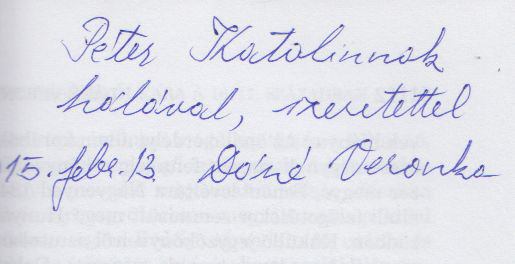 Péter Katalinnak
hálával, szeretettel
015. febr. 13. Dósé Veronka